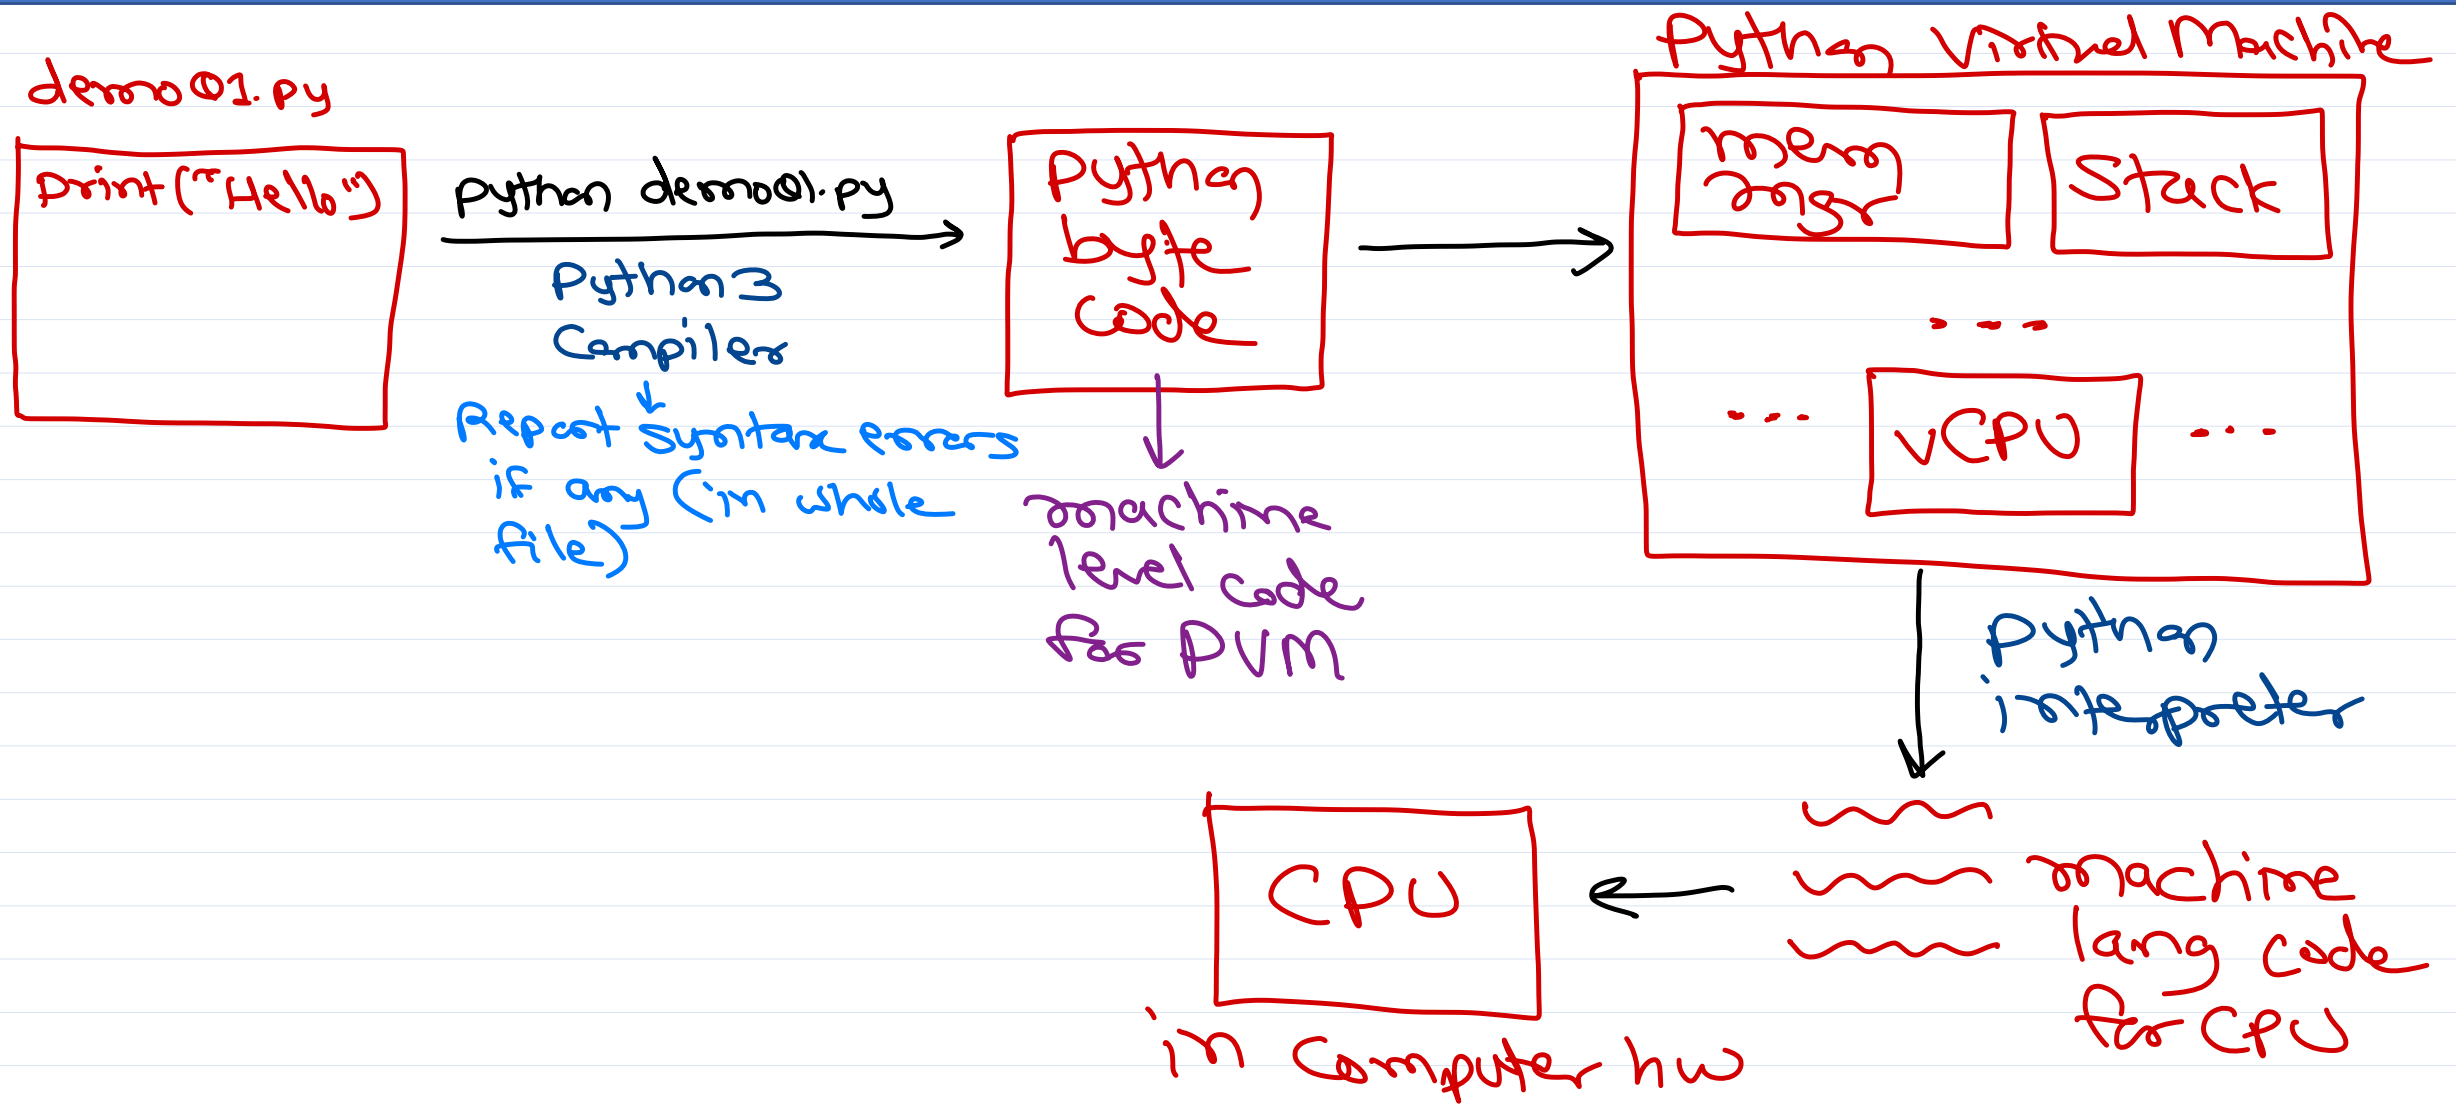 demo01.py
print("Hello")
python demo01.py
Python3
Compiler
Report Syntax errors
if any (in whole
file)
Python
byte
code
machine
level code
for PVM
Python Virtual Machine
mem
mgr
Stack
... 
... vCPU ...
python
interpreter
machine
lang code
for CPU
CPU
in Computer hw